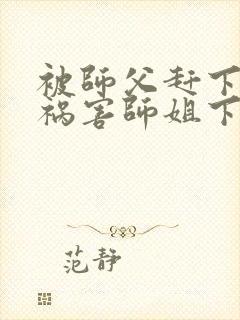 被師父赶下
祸害師姐下
范静